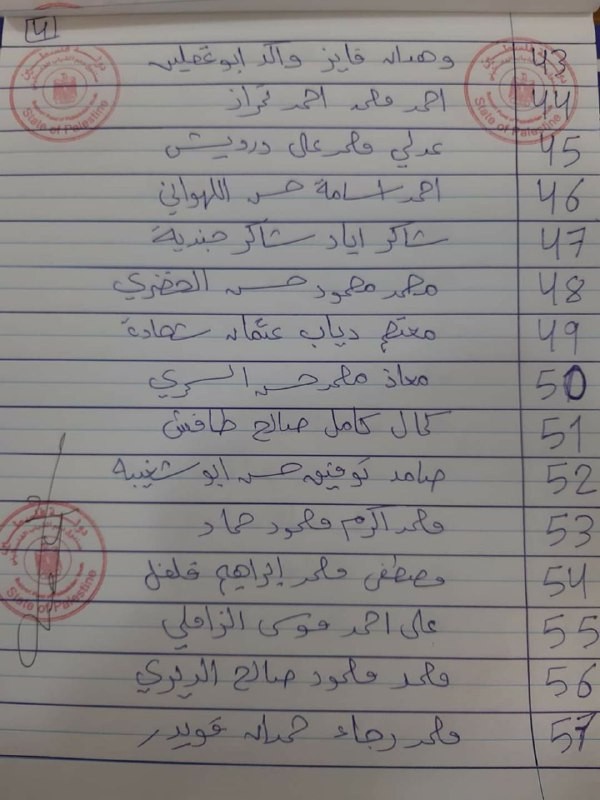 4
43 وهدان فايز والد ابو عقلين
44 احمد محمد احمد تمراز
45 عدلي محمد علي درويش
46 احمد اسامة حسن اللهواني
47 شاكر اياد شاكر جندية
48 محمد محمود حسن الخضري
49 معتصم دياب عثمان شحادة
50 معاذ محمد حسن السري
51 كمال كامل صالح طافش
52 صامد توفيق حسن ابو شغيبة
53 محمد اكرم محمود حماد
54 مصطفى محمد إبراهيم فلفل
55 على احمد موسى الزاملي
56 محمد محمود صالح الديري
57 محمد رجاء حمدان قويدر
State of Palestine
State of Palestine
State of Palestine